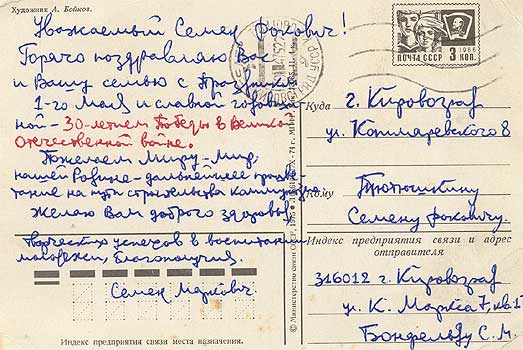 Художник А. Бойков.
Уважаемый Семен Фокович!
Горячо поздравляю Вас
и Вашу семью с Праздником
1-го Мая и славной годовщи
ной - 30-летием Победы в Велико
Отечественной войне.
Пожелаем Миру - Мир,
нашей Родине - дальнейшее процве
тание на пути строительства коммунизма
Желаю Вам доброго здоровья
творческих успехов в воспитании
молодежи, Благополучия.
Семен Маркович
Индекс предприятия связи места назначения.
© Министерство связи СССР, 1975
ПОЧТА СССР
1966
3 КОП.
Куда
г. Кировоград
ул. Компаревского 8
Кому
Тютюшкину
Семену Фоковичу.
Индекс предприятия связи и адрес
отправителя
316012 г. Кировоград
ул. К. Маркса 7, кв. 17
Бонфельду С. М.